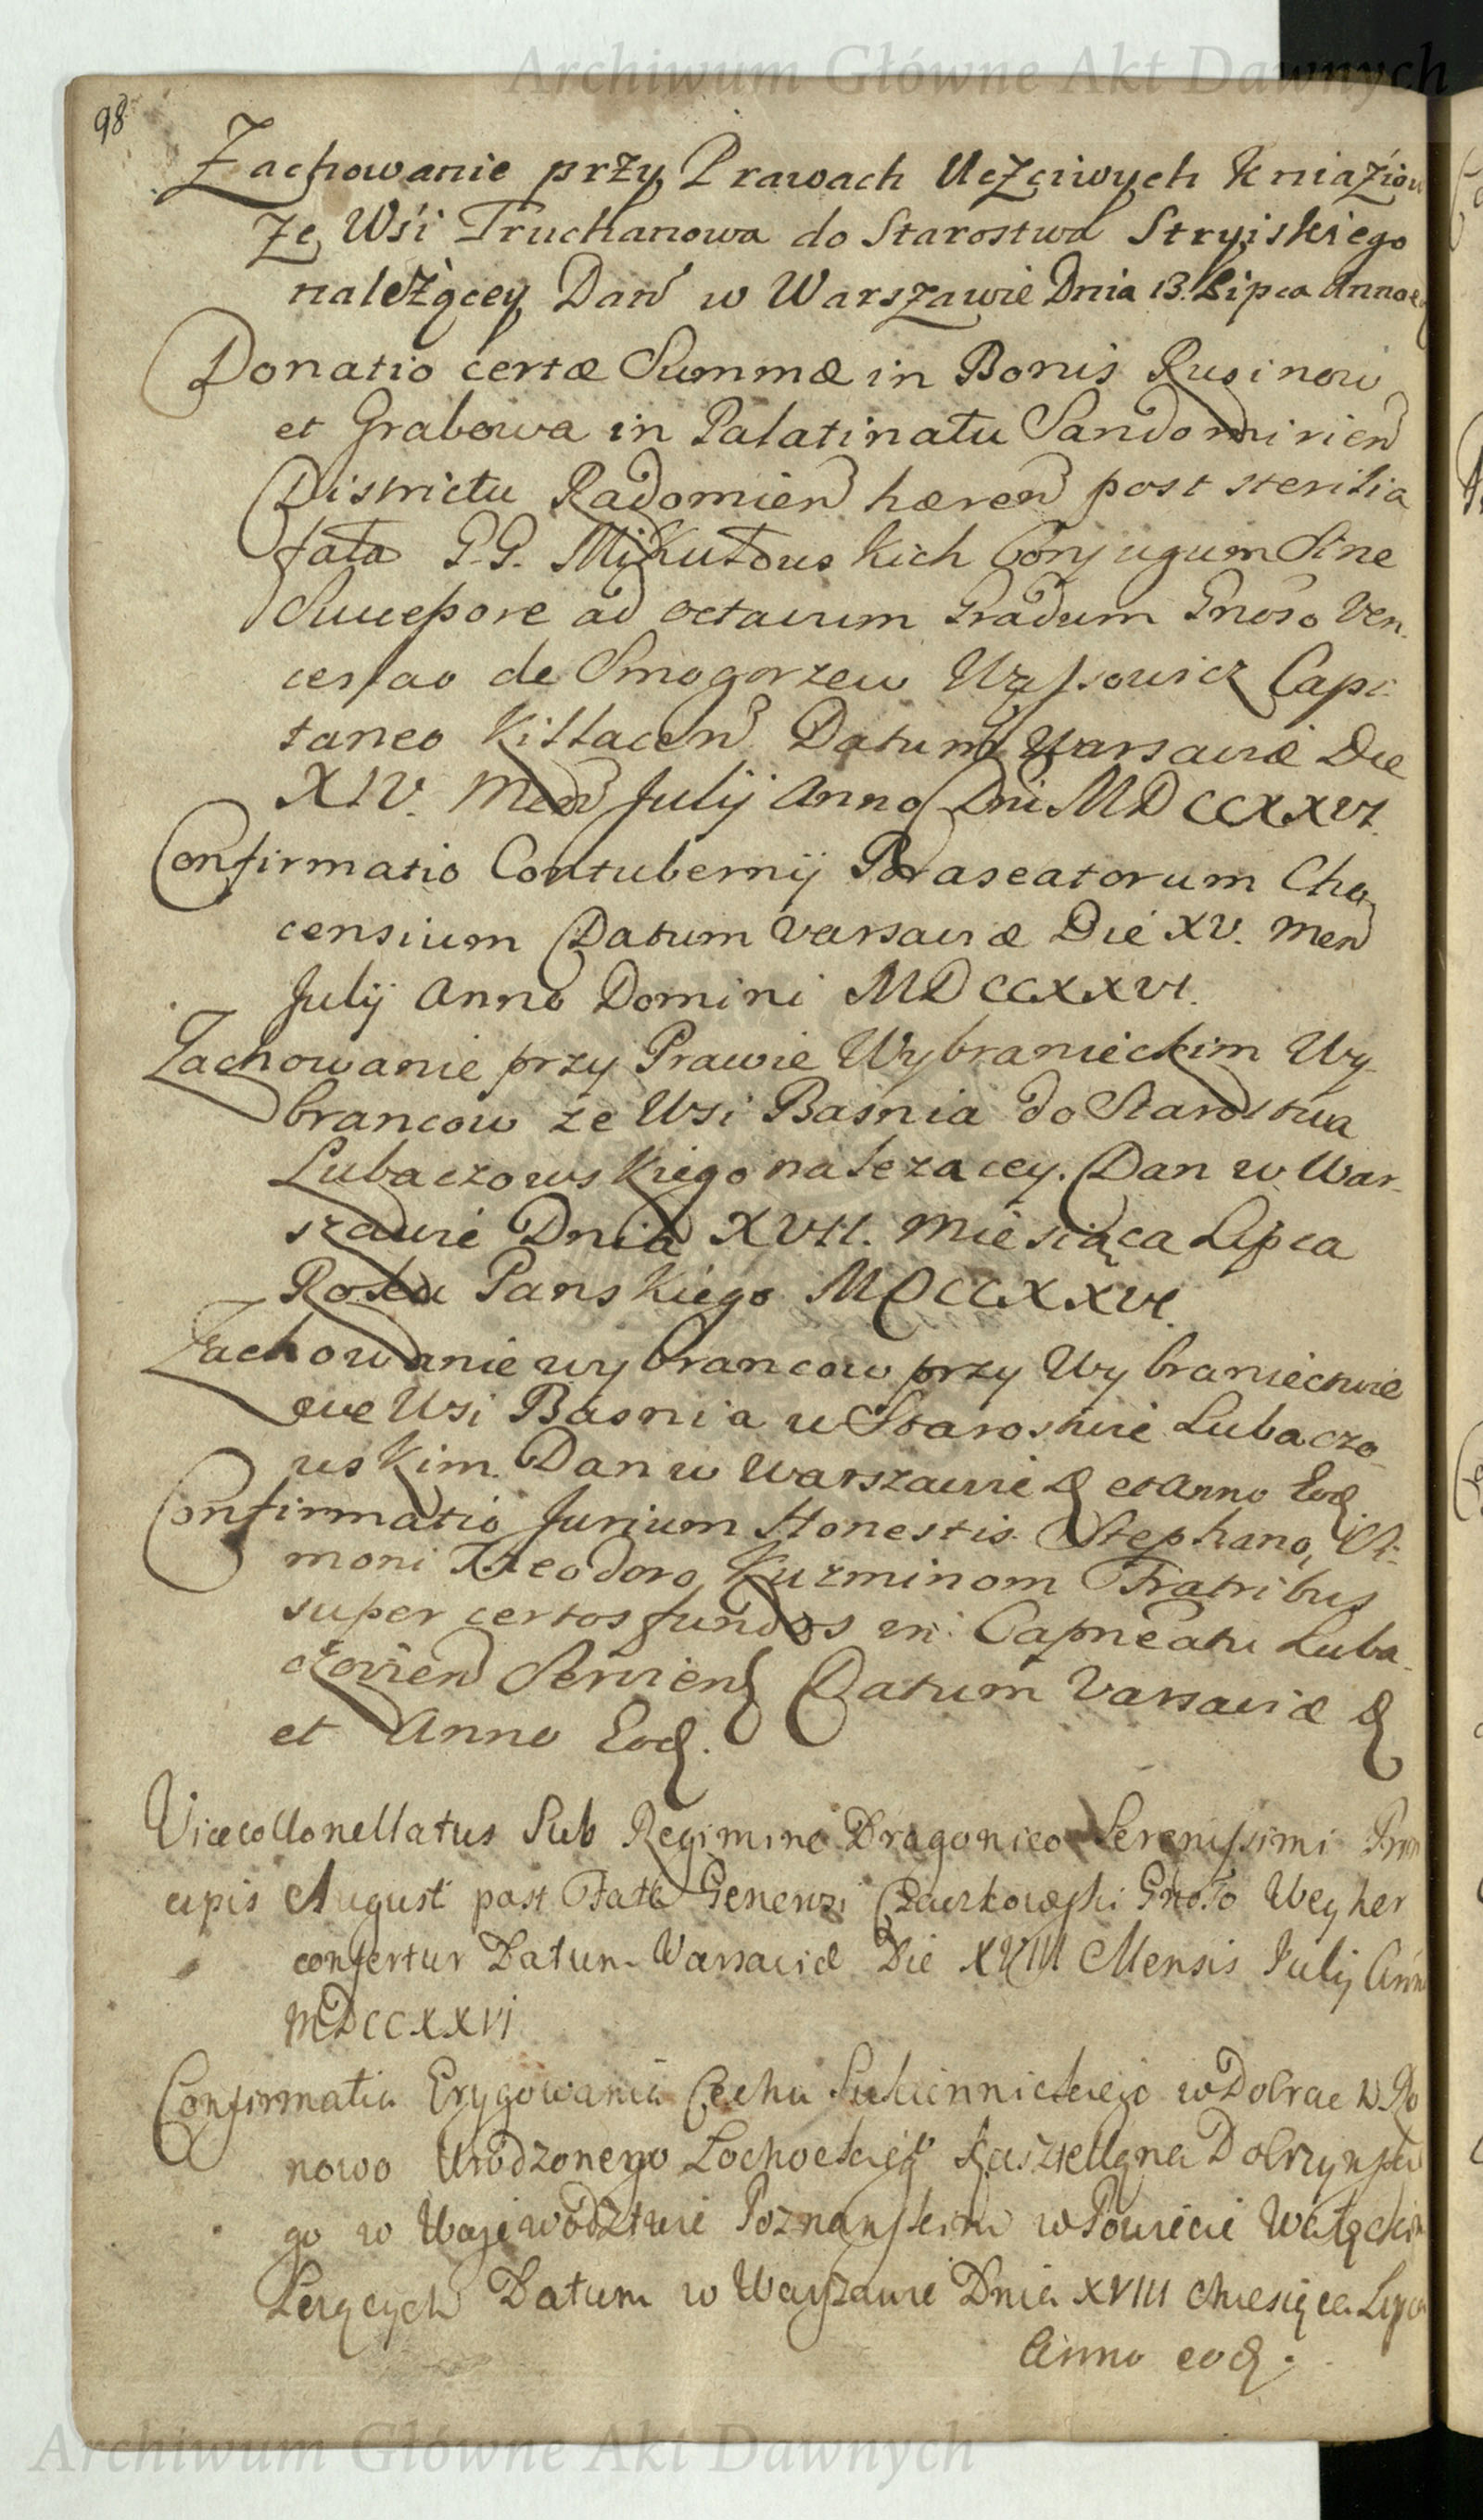 Archiwum Główne Akt Dawnych
98
Zachowanie przy Prawach Uczciwych Kniaziow
Ze Wśi Truchanowa do Starostwa Stryiskiego
należącey Dań w Warszawie Dnia 13. Lipca Anno
Donatio certæ Summæ in Bonis Rusinow
et Grabowa in Palatinatu Sandomirien
Districtu Radomien hæren post sterilia
fata G.G. Mikułowskich Conjugum Sine
Successore ad octavum Gradum Gnoso Ven
ceslao de Smogorzew Capi
taneo Datum Varsaviæ Die
XIV. Men Julij Anno Dni MDCCXXVI.
Confirmatio Contubernij Cho
censium Datum Varsaviæ Die XV. Men
Julij Anno Domini MDCCXXVI.
Zachowanie przy Prawie Wybranieckim Wy
brancow ze Wsi Basnia do Starostwa
Lubaczowskiego nalezacey. Dan w War
szawie Dnia XVII. Miesiąca Lipca
Roku Panskiego MDCCXXVI.
Zachowanie wybrancow przy Wybraniectwie
we Wsi Basnia w Starostwie Lubaczo
wskim. Dan w Warszawie D et Anno Eod
Confirmatio Jurium Honestis Stephano, Si
moni Theodoro Kuzminom Fratribus
super certos fundos in Capneatu Luba
czovien Servien Datum Varsaviæ D
et Anno Eod.
Vicecollonellatus Sub Regimine Dragonico Serenissimi Prin
cipis August post Fata Generosi Gnoso Weyher
confertur Datum Varsaviæ Die XVIII Mensis Julij Anno
MDCCXXVI
Confirmatio Erygowania Cechu Sukiennickiego w Dobrac
nowo Urodzonego Lochockieg Kasztellana Dobrzynskie
go w Wojewodztwie Poznanskim w Powiecie Wałeckim
Lezących Datum w Warszawie Dnia XVIII Miesiąca Lipca
Anno eod.
Archiwum Główne Akt Dawnych